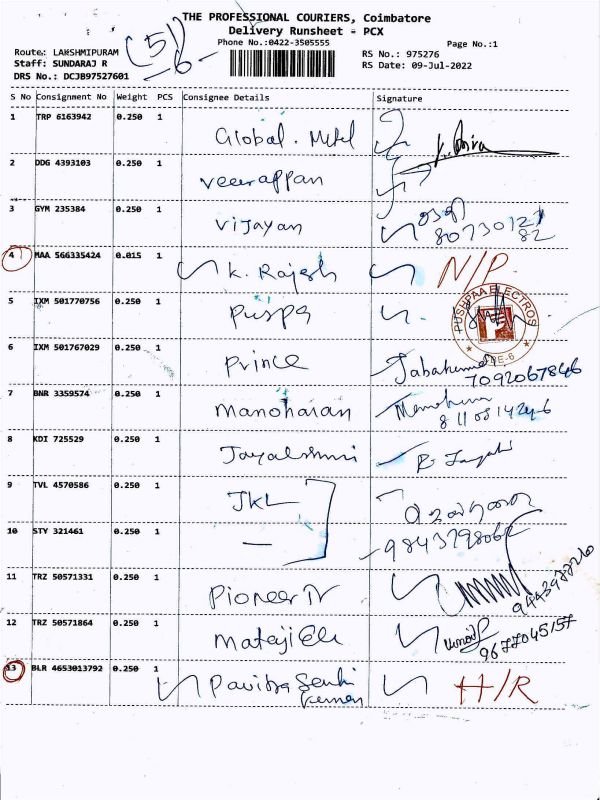 THE PROFESSIONAL COURIERS, Coimbatore
Delivery Runsheet - PCX
Phone No.:0422-3505555
Page No.:1
Route: LAKSHMIPURAM
Staff: SUNDARAJ R
DRS No.: DCJB97527601
(5)
-6-
RS No.: 975276
RS Date: 09-Jul-2022
S No Consignment No Weight PCS Consignee Details Signature
1 TRP 6163942 0.250 1 Global. Metel
2 DDG 4393103 0.250 1 Veerappan
3 GYM 235384 0.250 1 Vijayan
80730121
82
4 MAA 566335424 0.015 1 K. Rajesh N/P
5 IXM 501770756 0.250 1 Puspa
PUSHPAA ELECTROS
6 IXM 501767029 0.250 1 Prince
7092067846
7 BNR 3359574 0.250 1 Manoharan
8 KDI 725529 0.250 1 Jayalshmi
9 TVL 4570586 0.250 1 JKL
10 STY 321461 0.250 1 —
11 TRZ 50571331 0.250 1 Pioneer TV
12 TRZ 50571864 0.250 1 Mataji Ele
9677045157
13 BLR 4653013792 0.250 1 Pavitra H/R